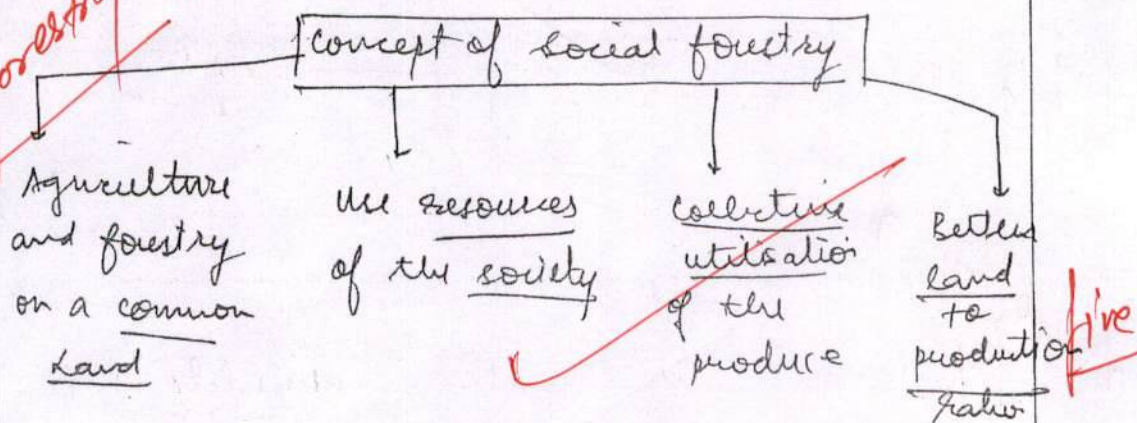 orestr
Concept of social forestry
Agriculture
and forestry
on a common
Land
Use resources
of the society
Collective
utilisation
of the
produce
Better
land
to
production
ratio
five